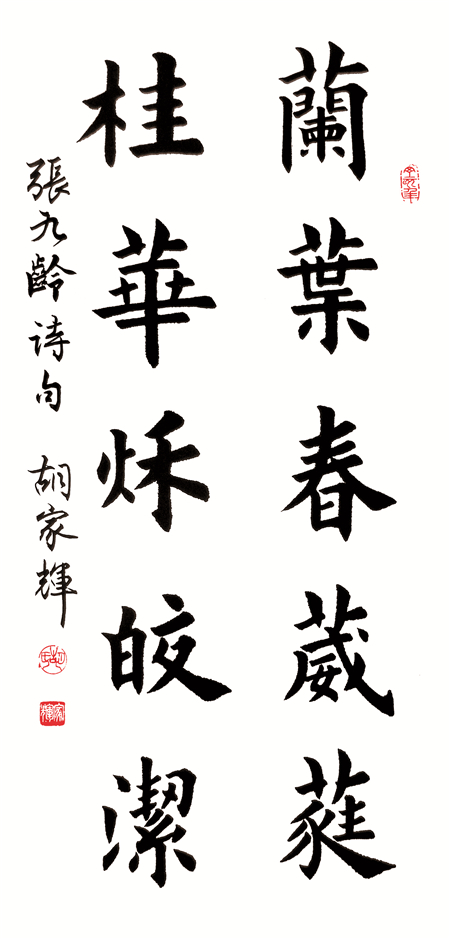 蘭葉春葳蕤
桂華秌皎潔
張九齡诗句 胡家輝